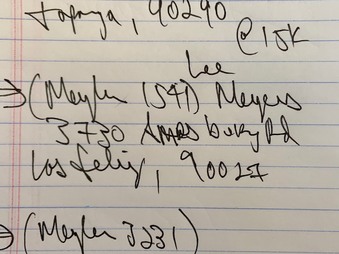 Topanga, 90290
@ 15K
Lee
⇒ (Meyler 1541) Meyers
3730 Amesbury Rd
Los Feliz, 90027
⇒ (Meyler 3231)